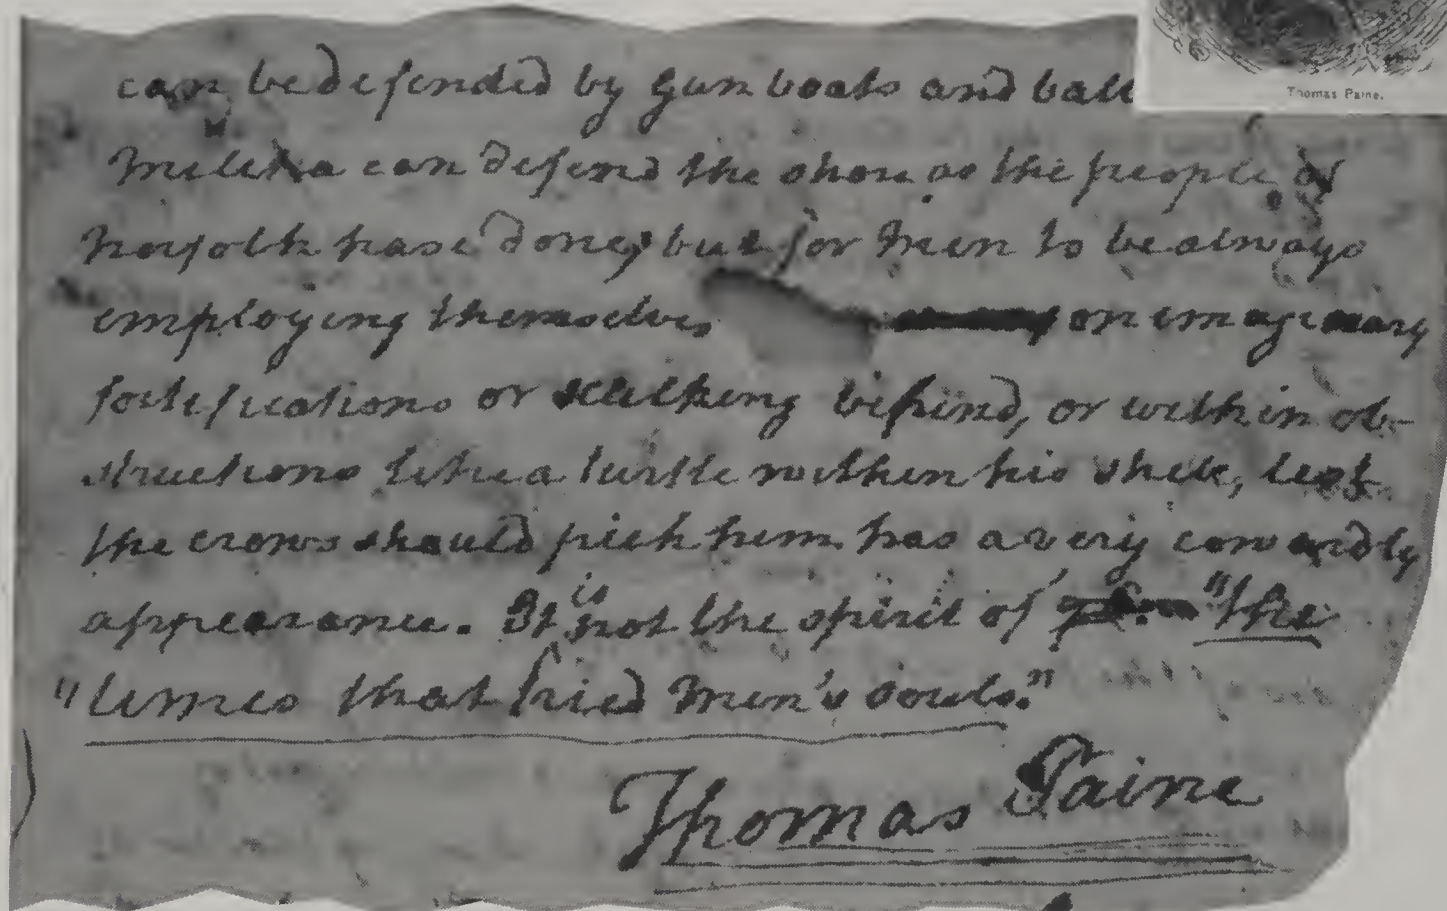 can be defended by gun boats and batt
Thomas Paine.
Militia can defend the shore as the people of
Norfolk have done, but for Men to be always
employing themselves on imaginary
fortifications or sculking behind, or within ob-
structions like a turtle within his shell, lest
the crows should pick him has a very cowardly
appearance. It is not the spirit of "the
"times that tried Men's souls."
Thomas Paine